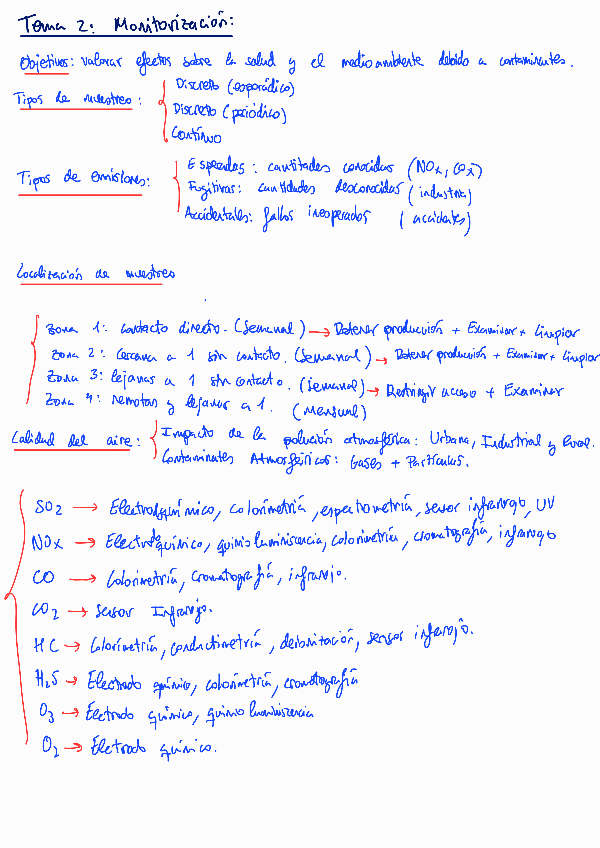 Tema 2: Monitorización:
Objetivos: valorar efectos sobre la salud y el medioambiente debido a contaminantes.
Tipos de muestreo:
Discreto (esporádico)
Discreto (periódico)
Continuo
Tipos de emisiones:
Esperadas: cantidades conocidas (NOx, COx)
Fugitivas: cantidades desconocidas (industria)
Accidentales: fallos inesperados (accidentes)
Localización de muestreo
Zona 1: contacto directo. (Semanal) → Detener producción + Examinar + Limpiar
Zona 2: Cercana a 1 sin contacto. (Semanal) → Detener producción + Examinar + Limpiar
Zona 3: lejanas a 1 sin contacto. (Semanal) → Restringir acceso + Examinar
Zona 4: remotas y lejanas a 1. (Mensual)
Calidad del aire:
Impacto de la polución atmosférica: Urbana, Industrial y Rural.
Contaminantes Atmosféricos: Gases + Partículas.
SO2 → Electrodo químico, colorimetría, espectrometría, sensor infrarrojo, UV
NOx → Electrodo químico, quimioluminiscencia, colorimetría, cromatografía, infrarrojo
CO → Colorimetría, cromatografía, infrarrojo.
CO2 → Sensor Infrarrojo.
HC → Colorimetría, conductimetría, sensor infrarrojo.
H2S → Electrodo químico, colorimetría, cromatografía
O3 → Electrodo químico, quimioluminiscencia
O2 → Electrodo químico.